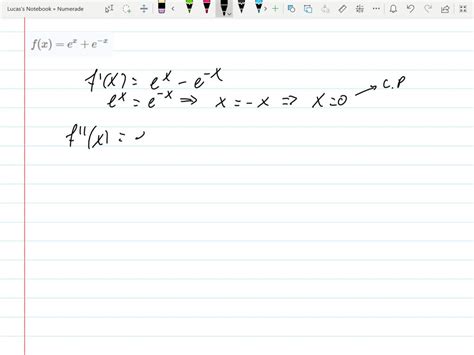 Lucas's Notebook • Numerade
f(x) = e^x + e^-x
f'(x) = e^x - e^-x
e^x = e^-x ⇒ x = -x ⇒ x = 0 → C.P
f''(x) =